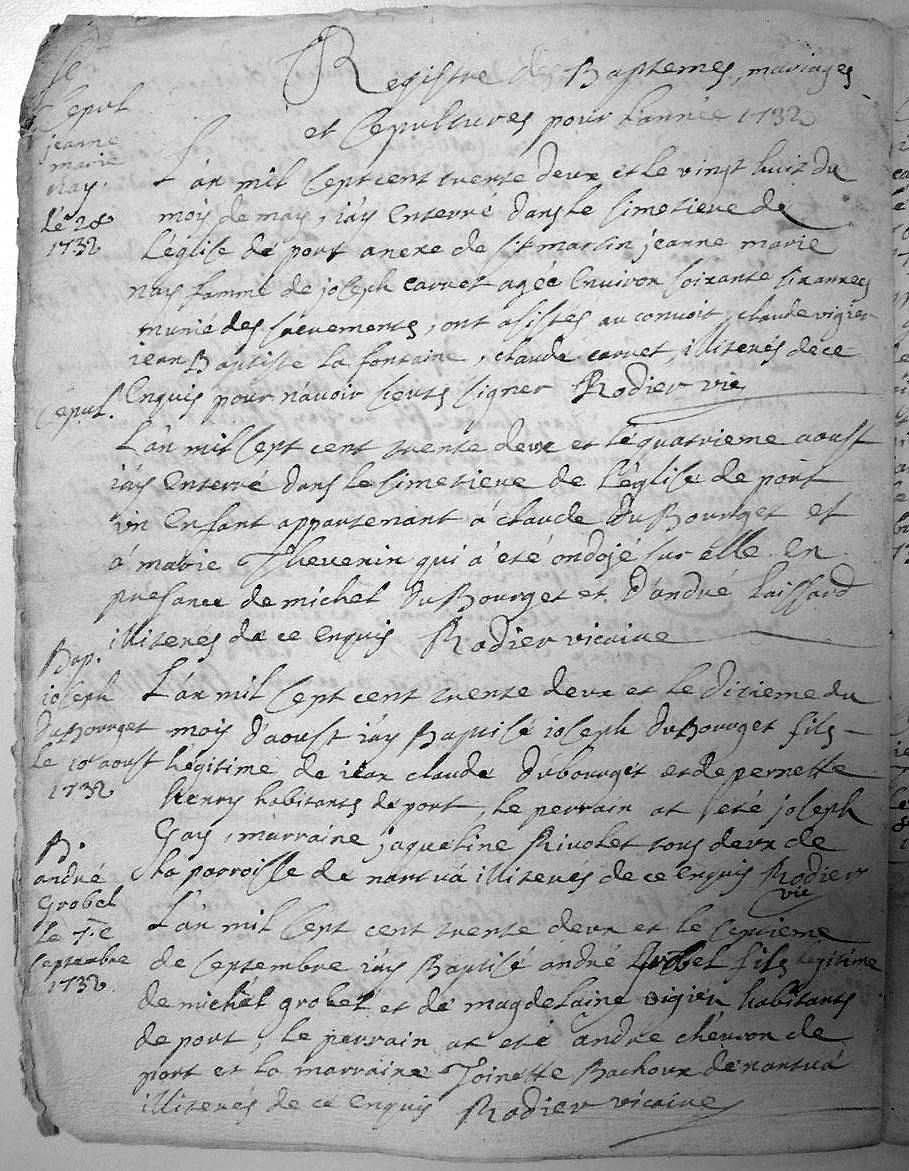 Registre des Baptemes, mariages
et Sepultures pour l'année 1732
Sepul
jeanne
marie
nay
le 28
1732
L'an mil Sept cent trente deux et le vingt huit du
mois de may, j'ay Enterré dans le simetiere de
L'église de port anexe de St martin jeanne marie
nay famme de joseph carnet agée Environ soixante six années
munie des sacrements, ont asistes au convoit, claude vigier
jean Baptiste la fontaine, claude carnet, illiterés de ce
Enquis pour n'avoir sceuts signer Rodier vic
Sepul.
L'an mil Sept cent trente deux et le quatrieme aoust
j'ay Enterré dans le simetiere de L'église de port
un Enfant appartenant à claude du Bourget et
à marie Thevenin qui a été ondojé sur elle En
presance de michel du Bourget et d'andré Laissard
illiterés de ce Enquis Rodier vicaire
Bap.
joseph
du Bourget
le 10 aoust
1732
L'an mil Sept cent trente deux et le dixieme du
mois d'aoust j'ay Baptisé joseph du Bourget fils
légitime de jean claude dubourget et de pernette
henry habitants de port, le perrain at été joseph
Gay, marraine jaqueline Rivolet tous deux de
la parroisse de nantua illiterés de ce Enquis Rodier
vic
B.
andré
Grobel
le 7.e
septambre
1732
L'an mil Sept cent trente deux et le septieme
de Septembre j'ay Baptisé andré grobel fils légitime
de michel grobel et de magdelaine vigier habitants
de port, le perrain at eté andré chevron de
port et la marraine Toinette Bachoux de nantua
illiterés de ce Enquis Rodier vicaire